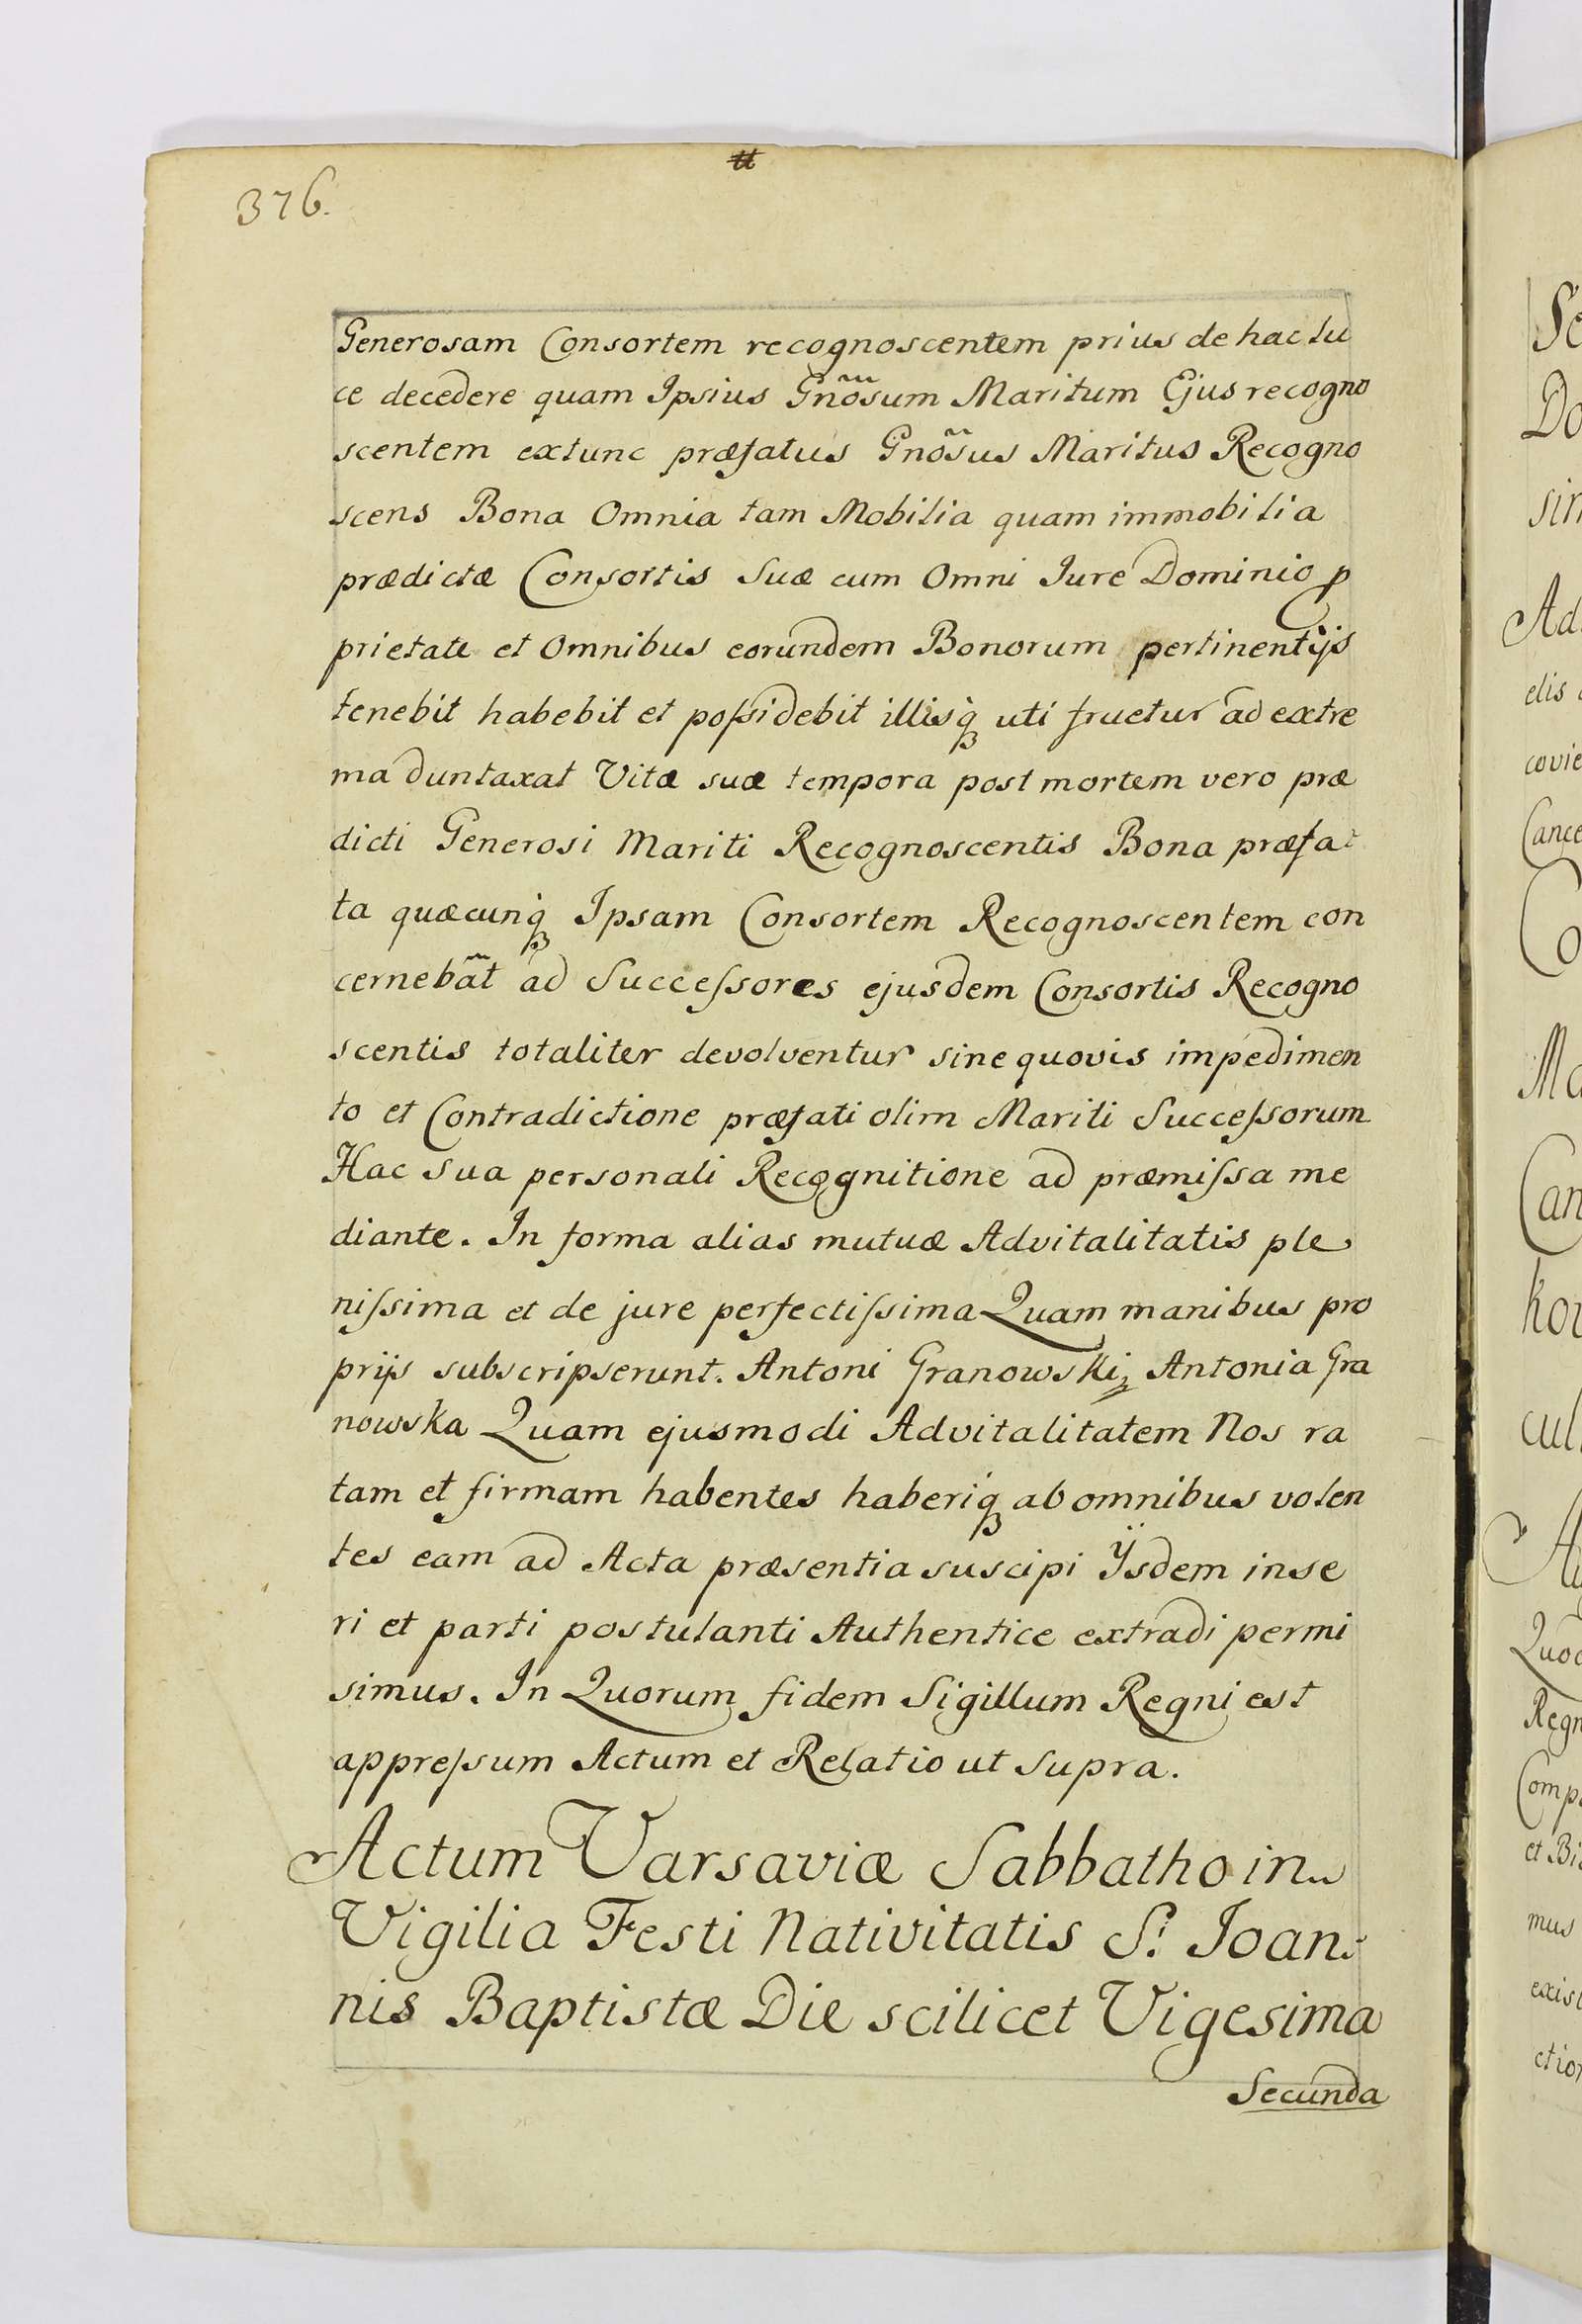 376.
Generosam Consortem recognoscentem prius de hac lu
ce decedere quam Ipsius Gnõsum Maritum Ejus recogno
scentem extunc præfatus Gnõsus Maritus Recogno
scens Bona Omnia tam Mobilia quam immobilia
prædictæ Consortis Suæ cum Omni Jure Dominio ꝓ
prietate et Omnibus eorundem Bonorum pertinentijs
tenebit habebit et poſsidebit illisqꝫ uti fruetur ad extre
ma duntaxat Vitæ suæ tempora post mortem vero præ
dicti Generosi Mariti Recognoscentis Bona præfa-
ta quæcunqꝫ Ipsam Consortem Recognoscentem con
cernebãt ad Succeſsores ejusdem Consortis Recogno
scentis totaliter devolventur sine quovis impedimen
to et Contradictione præfati olim Mariti Succeſsorum
Hac sua personali Recognitione ad præmiſsa me
diante. In forma alias mutuæ Advitalitatis ple
niſsima et de jure perfectiſsima Quam manibus pro
prijs subscripserunt. Antoni Granowski, Antonia Gra
nowska Quam ejusmodi Advitalitatem Nos ra
tam et firmam habentes haberiqꝫ ab omnibus volen
tes eam ad Acta præsentia suscipi Ÿsdem inse
ri et parti postulanti Authentice extradi permi
simus. In Quorum fidem Sigillum Regni est
appreſsum Actum et Relatio ut Supra.
Actum Varsaviæ Sabbatho in
Vigilia Festi Nativitatis S. Joan-
nis Baptistæ Die scilicet Vigesima
Secunda